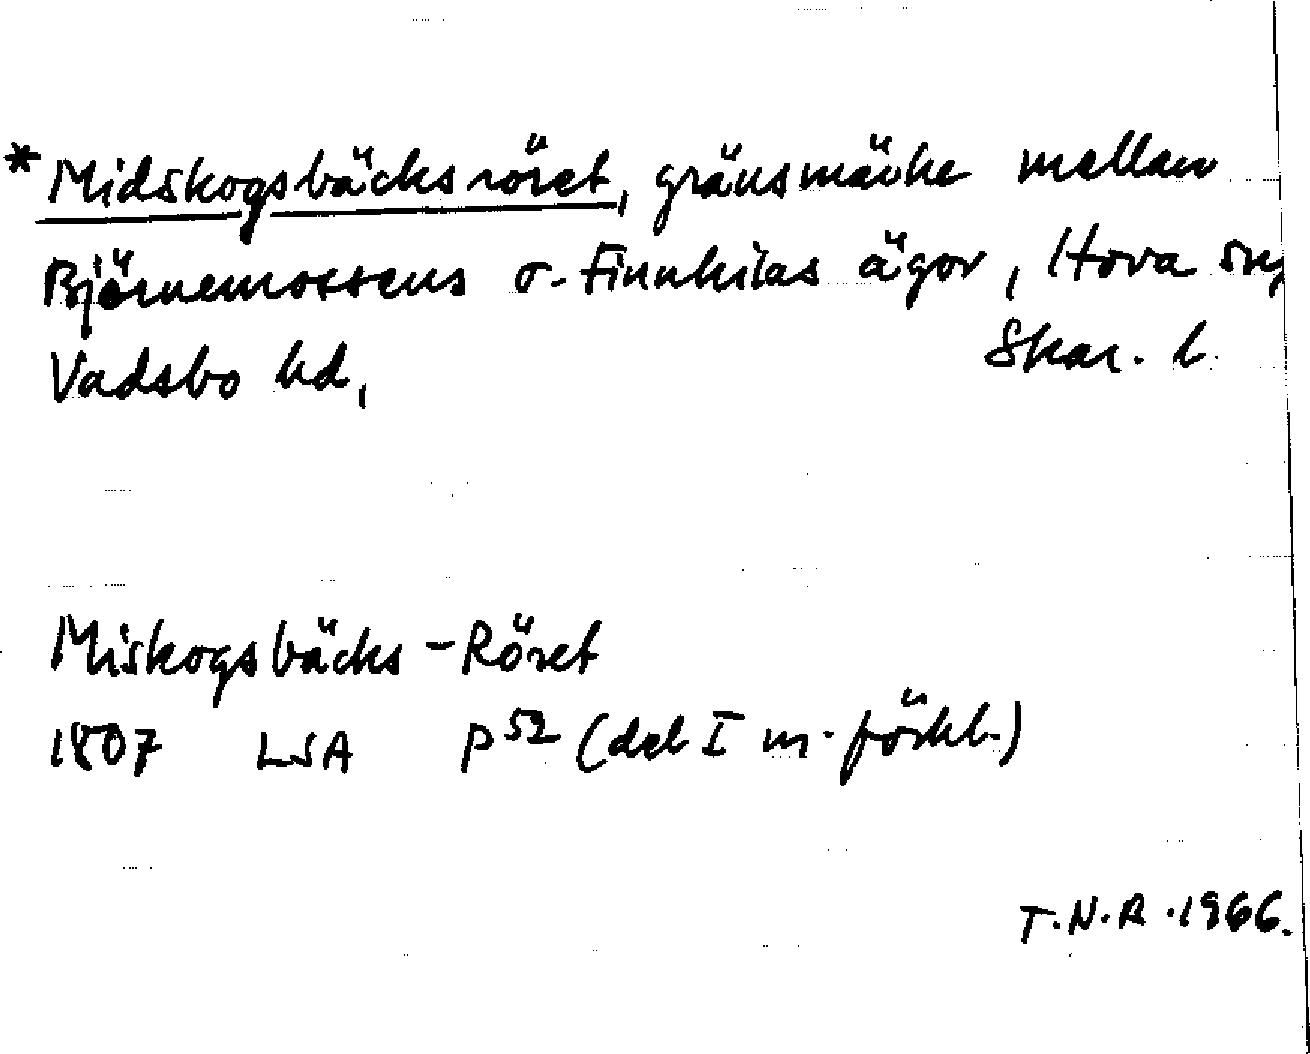 *Midskogsbäcksröset, gränsmärke mellan
Björnemossens o. Finnkilas ägor, Hova sn,
Vadsbo hd, Skar. l.
Miskogsbäcks-Röset
1807 LSA P52 (del I m. förkl.)
T.N.R. 1966.